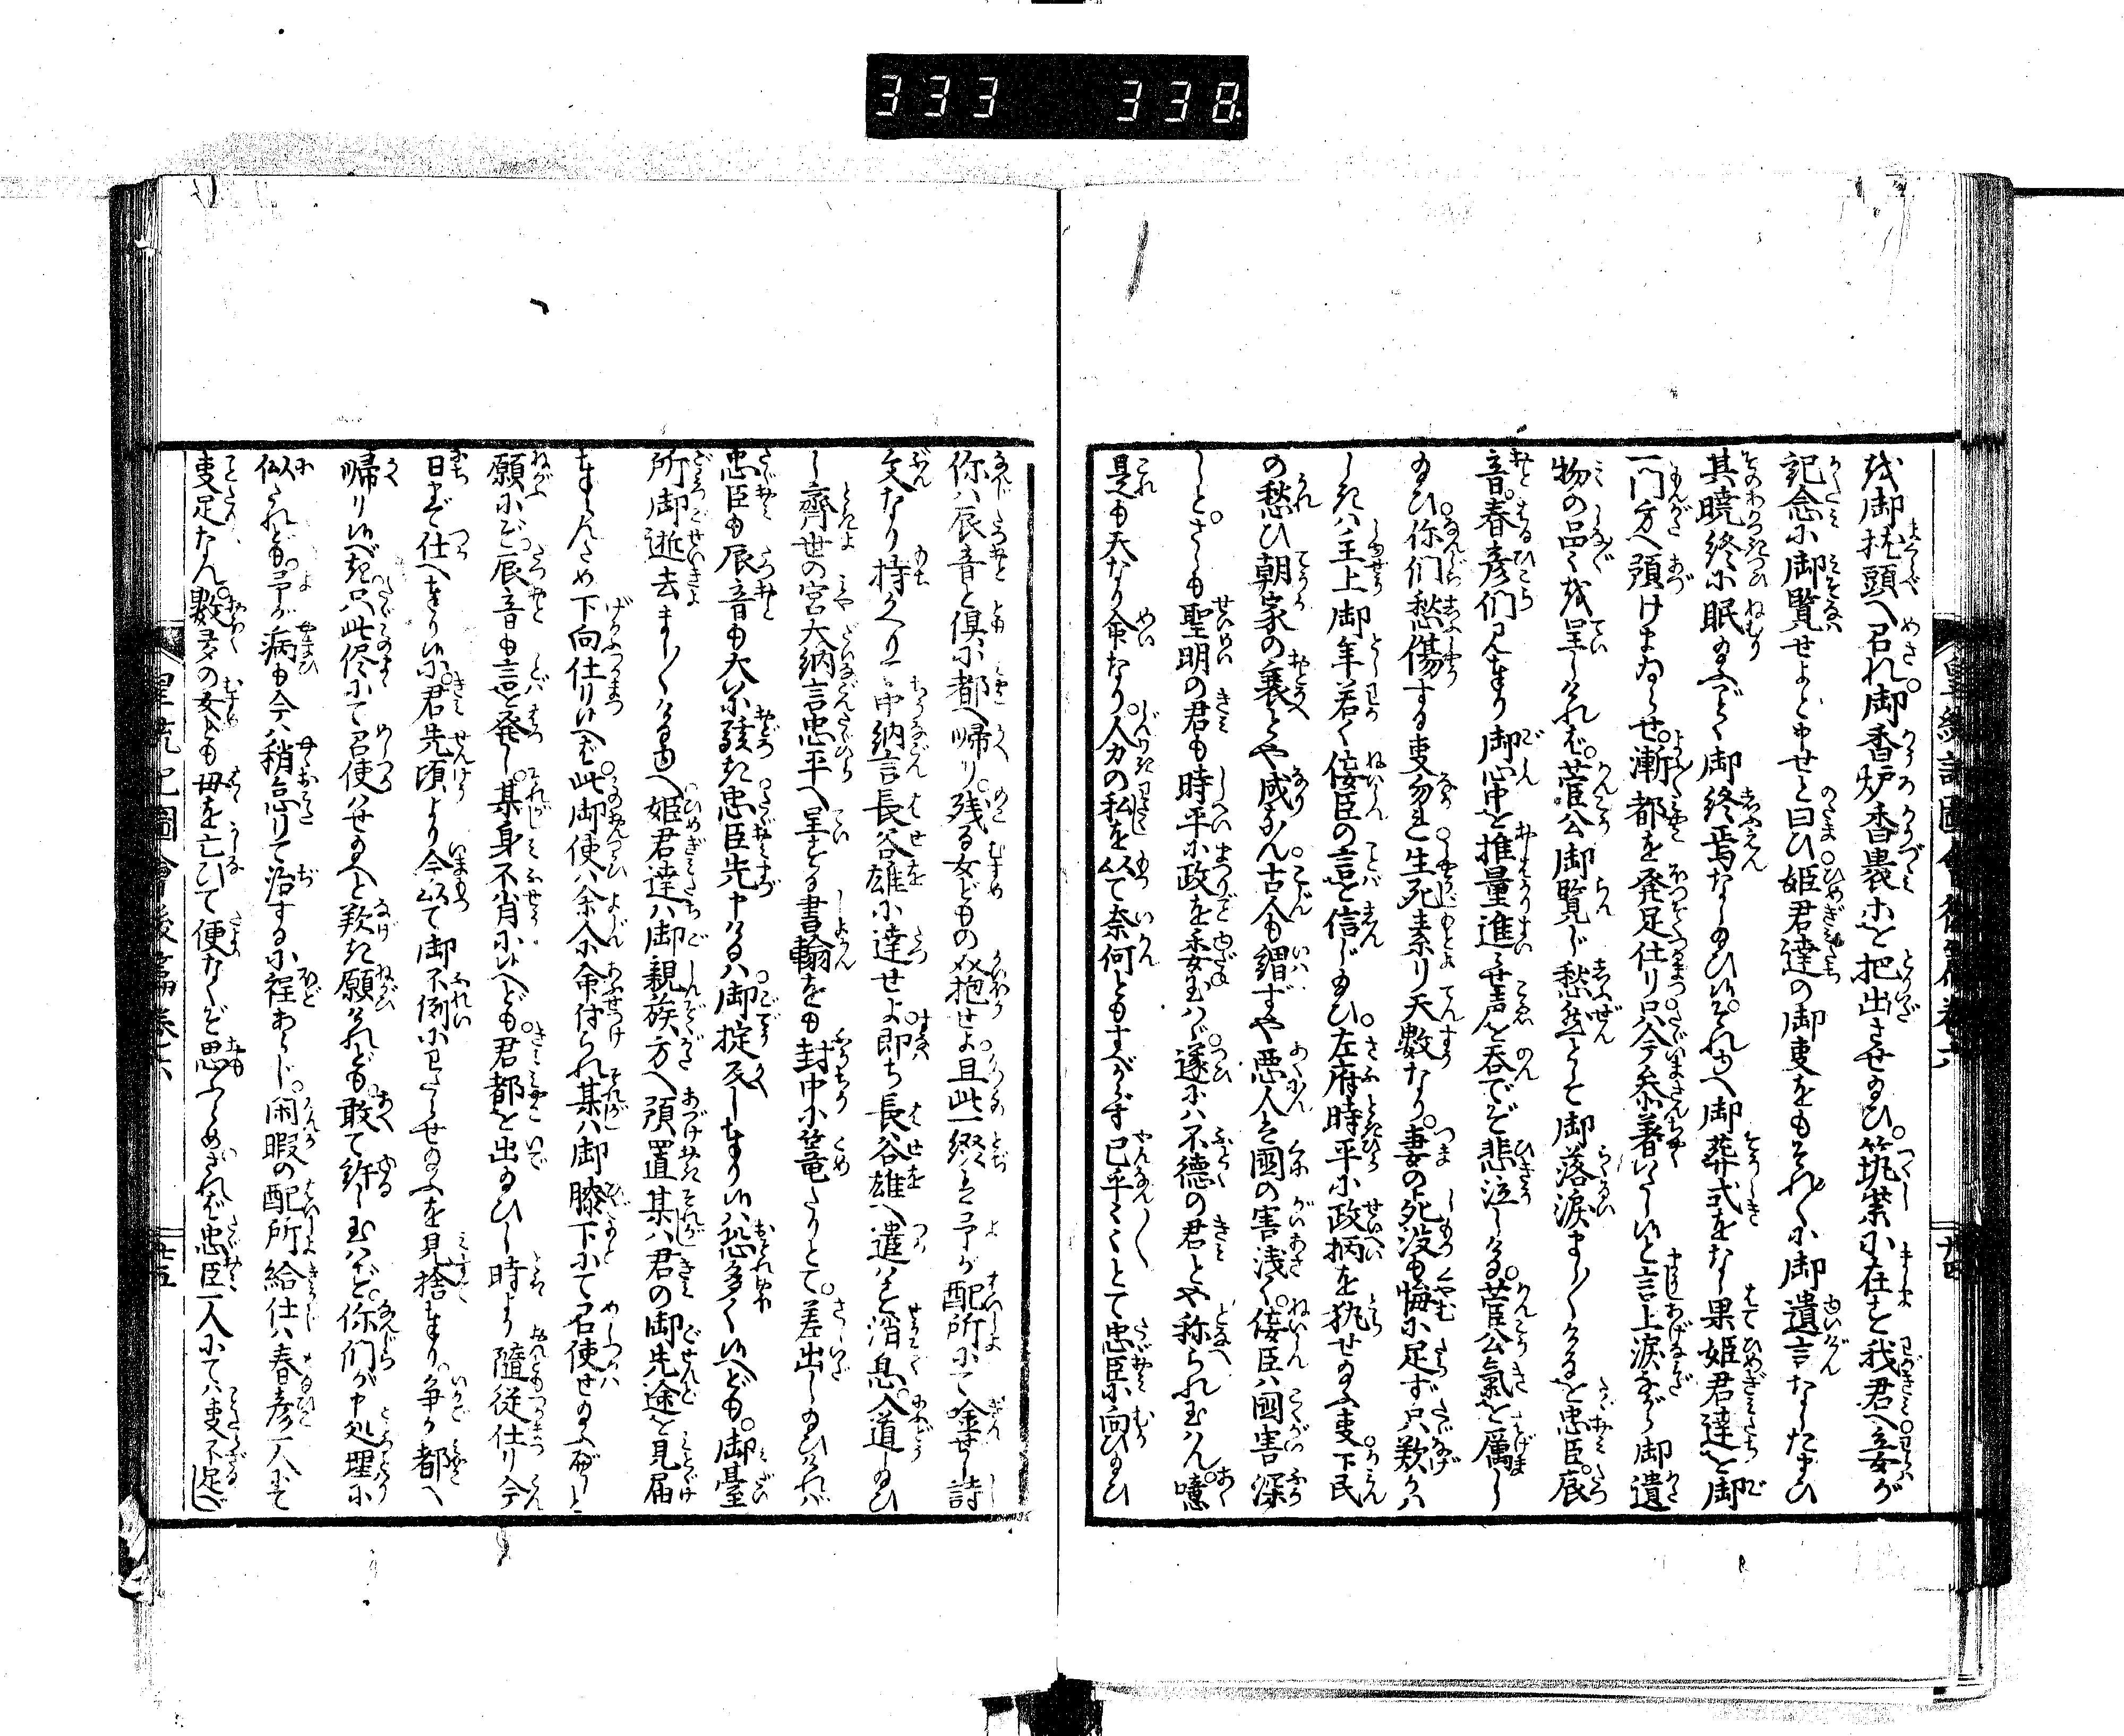 333 338
皇統記圖會後篇卷六
廿四
を御枕頭へ召れ。御香炉香裹などを把出させ給ひ。筑紫に在す我君へ妾が
記念に御覧せよと申せと曰ひ姫君達の御叓をもそれ〳〵に御遺言なしたまひ
其暁終に眠るごとく御終焉なし給ひぬ。それゆへ御葬式をなし果姫君達を御
一門方へ預けまゐらせ。漸都を発足仕り只今参著いたし候と言上涙ながら御遺
物の品〻を呈しければ。菅公御覧じ愁然として御落涙まし〳〵けるを忠臣。辰
音。春彦们見奉り御心中を推量進せ声を呑でぞ悲泣しける。菅公氣を厲し
給ひ你们愁傷する叓勿れ生死素り天數なり。妻の死没も悔に足ず只歎くは
しきは主上御年若く侫臣の言を信じ給ひ。左府時平に政柄を執せ給ふ叓下民
の愁ひ朝家の衰とや成なん。古人も謂ずや悪人は國の害浅く。侫臣は國害深
しと。さしも聖明の君も時平に政を委玉はゞ遂には不徳の君とや称られ玉はん。噫
是も天なり命なり。人力の私を以て奈何ともすべからず已乎〳〵とて忠臣に向ひ給ひ
你は辰音と倶に都へ帰り。残る女どもの介抱せよ且此一綴は予が配所にて唫ぜし詩
文なり持かへり中納言長谷雄に達せよ。即ち長谷雄へ遣はす消息。入道し給ひ
し齊世の宮大納言忠平へ呈する書翰をも封中に篭たりとて。差出し給ひければ
忠臣も辰音も大に駭き忠臣先申けるは。御掟反し奉り候は恐多く候へども。御臺
所御逝去まし〳〵ける由へ姫君達は御親族方へ預置某は君の御先途を見届
奉らんため下向仕り候へば。此御使は余人に命付られ某は御膝下にて召使せ給ふべしと
願にぞ辰音も言を発し。某身不肖に候へども。君都を出給ひし時より隨従仕り今
日まで仕へ奉りしに。君先頃より今以て御不例にわたらせ給ふを見捨奉り。争か都へ
帰り候べき只此侭にて召使はせ給へと歎き願けれども。敢て許し玉はず。你们が申処理に
似たれども。予が病も今は稍怠りて治するに程あらじ。閑暇の配所給仕は春彦一人にて
叓足なん。數多の女ども母を亡ひて便なくぞ思ふらめされば忠臣一人にては叓不足べし
皇統記圖會後篇卷六
廿五